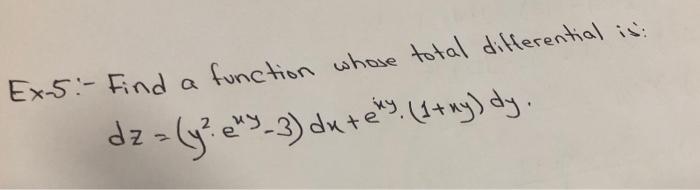 Ex-5:- Find a function whose total differential is:
dz = (y². e^xy - 3) dx + e^xy. (1+xy) dy.